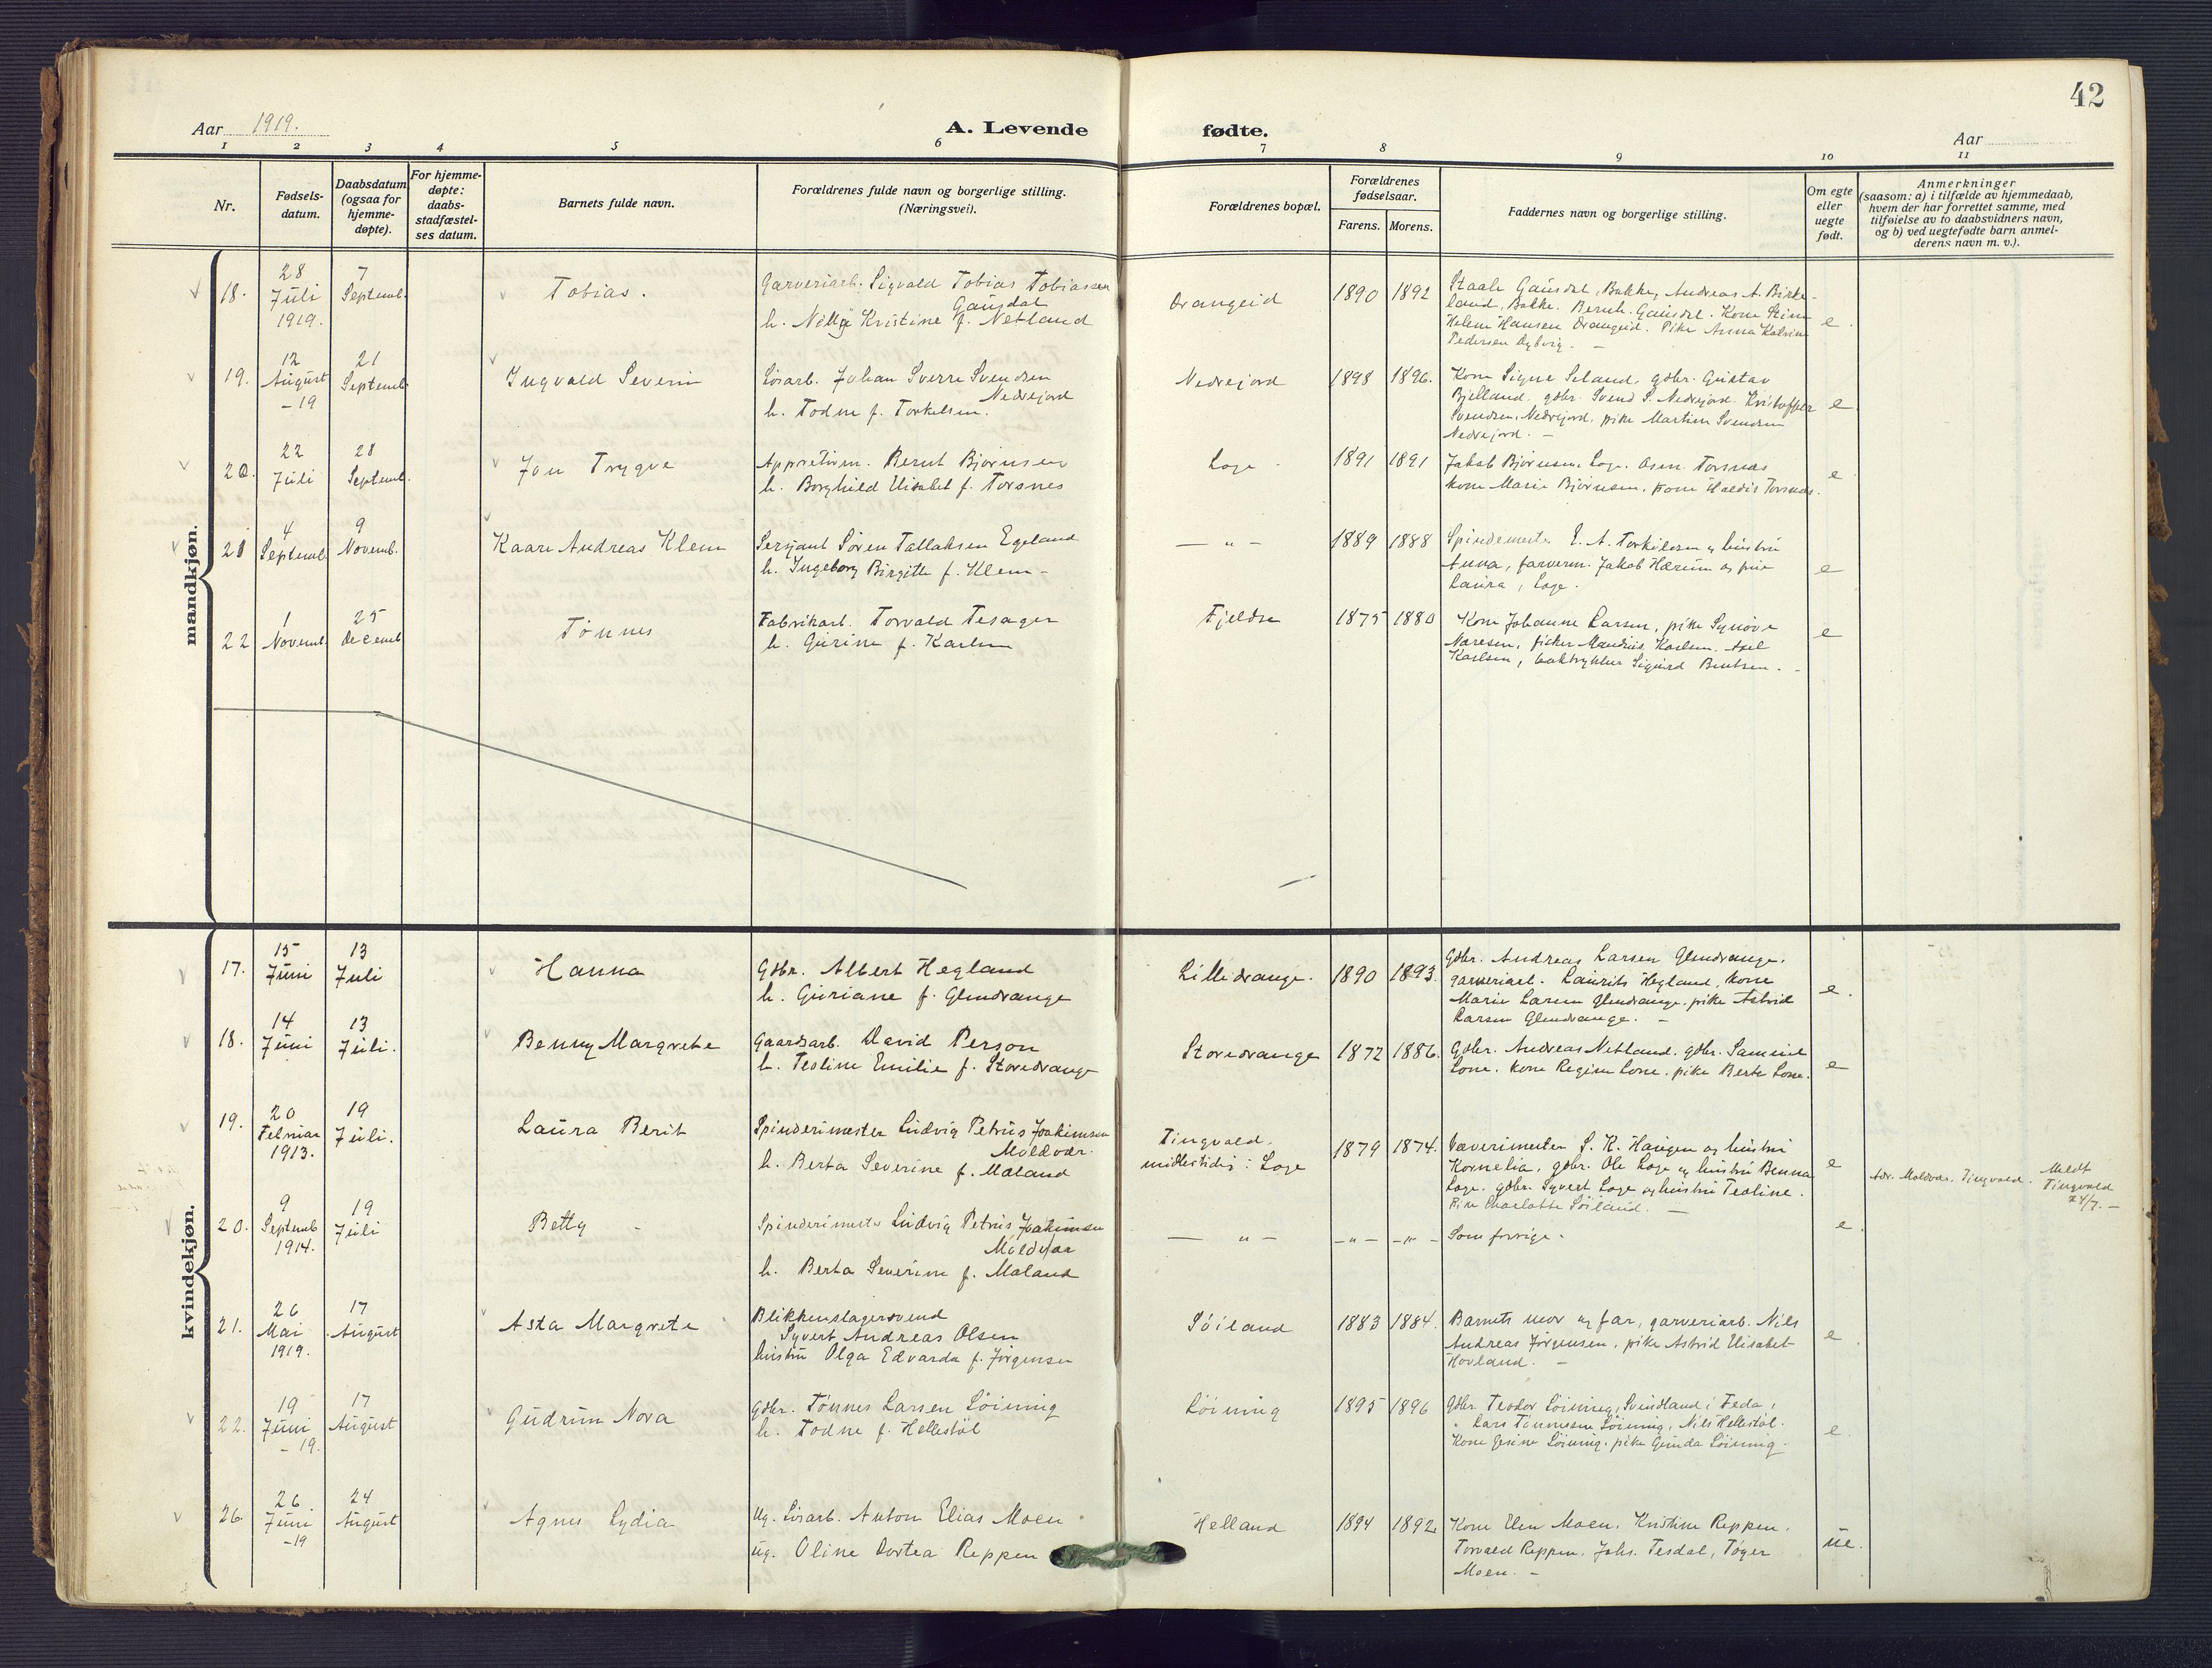 42
Aar 1919.
A. Levende fødte.
Aar
1 2 3 4 5 6 7 8 9 10 11
Nr.
Fødsels-
datum.
Daabsdatum
(ogsaa for
hjemme-
døpte).
For hjemme-
døpte:
daabs-
stadfæstel-
ses datum.
Barnets fulde navn.
Forældrenes fulde navn og borgerlige stilling.
(Næringsvei).
Forældrenes bopæl.
Forældrenes
fødselsaar.
Farens. Morens.
Faddernes navn og borgerlige stilling.
Om egte
eller
uegte
født.
Anmerkninger
(saasom: a) i tilfælde av hjemmedaab,
hvem der har forrettet samme, med
tilføielse av to daabsvidners navn,
og b) ved uegtefødte barn anmel-
derens navn m. v.).
mandkjøn.
18.
28
Juli
1919.
7
Septemb.
Tobias.
Garveriarb. Sigvald Tobias Tobiassen
Gausdal
h. Nelly Kristine f. Netland
Drangeid
1890 1892
Staale Gausdal, Bakke, Andreas A. Birke-
land, Bakke. Bernh. Gausdal. Kone Stine
Helene Hansen Drangeid. Pike Anna Katrine
Pedersen
e.
19.
12
August
-19
21
Septemb.
Ingvald Severin
Løsarb. Johan Sverre Svendsen
Nedrejord
h. Todne f. Torkelsen.
Nedrejord
1898 1896.
Kone Signe Seland, gdbr. Gustav
Bjelland, gdbr. Svend S. Nedrejord. Kristoffer
Svendsen, Nedrejord, pike Martine Svendsen
Nedrejord. -
e
20.
22
Juli
28
Septemb.
Jon Trygve
Appreturm. Bernt Bjørnsen
h. Borghild Elisabet f. Torsnes
Loge
1891 1891
Jakob Bjørnsen, Loge. Torsnes
kone Marie Bjørnsen, kone Haldis Torsnes.
e
21
4
Septemb.
9
Novemb.
Kaare Andreas Klem
Sersjant Søren Tallaksen Egeland
h. Ingeborg Birgitte f. Klem -
— " -
1889 1888
Spindemester E. A. Torkilsen og hustru
Anna, farverm. Jakob Hærum og frue
Laura, Loge.
e
22
1
Novemb.
25
Decemb
Tønnes
Fabrikarb. Torvald Tesager
h. Gurine f. Karlsen
Fjeldse
1875 1880
Kone Johanne Larsen, pike Synøve
fisker Mandius Karlsen. Axel
Karlsen, boktrykker Sigurd Bentsen. -
e
kvindekjøn.
17.
15
Juni
13
Juli
Hanna
Gdbr. Albert Hegland
h. Guriane f. Glendrange
Lilledrange.
1890 1893.
Gdbr. Andreas Larsen Glendrange.
garveriarb. Laurits Hegland, kone
Marie Larsen Glendrange. pike Astrid
Larsen Glendrange. -
e.
18.
14
Juni
13
Juli.
Benny Margrete
Gaardsarb. David Person
h. Teoline Emilie f. Storedrange
Storedrange
1872 1886.
Gdbr. Andreas Netland. gdbr. Samuel
Lone. kone Regine Lone. pike Berte Lone.
e
19.
20
Februar
1913.
19
Juli.
Laura Berit
Spinderimester Ludvig Petrus Joakimsen
Moldvær.
h. Berta Severine f. Maland
Tingvold.
midlertidig: Loge
1879 1874.
Væverimester S. K. Haugen og hustru
Kornelia, gdbr. Ole Loge og hustru Benna
Loge. gdbr. Syvert Loge og hustru Teoline.
Charlotte Søiland. -
e
Adr. Moldvær. Tingvold.
Meldt
Tingvold
24/7. -
20.
9
Septemb
1914.
19
Juli
Betty
Spinderimester Ludvig Petrus Joakimsen
Moldvær
h. Berta Severine f. Maland
— " -
- " - - " -
Som forrige.
e.
21.
26
Mai
1919.
17
August
Asta Margrete
Blikkenslagersvend
Syvert Andreas Olsen
hustru Olga Edvarda f. Jørgensen
Søiland
1883 1884.
Barnets mor og far, garveriarb. Nils
Andreas Jørgensen, pike Astrid Elisabet
Hovland. -
e.
22.
19
Juni
-19.
17
August
Gudrun Nora
Gdbr. Tønnes Larsen Løining
h. Todne f. Hellestøl
Løining
1895 1896
Gdbr. Teodor Løining, Svindland i Feda,
" Lars Tønnessen Løining, Nils Hellestøl.
Kone Gesine Løining. pike Gunda Løining.
e.
26.
26.
Juni
-19
24
August
Agnes Lydia
Ug. Løsarb. Anton Elias Moen.
ug. Oline Dortea Reppen
Helland
1894 1892.
Kone Elen Moen. Kristine Reppen.
Torvald Reppen. Johs. Tesdal, Tøger
Moen. -
ue.